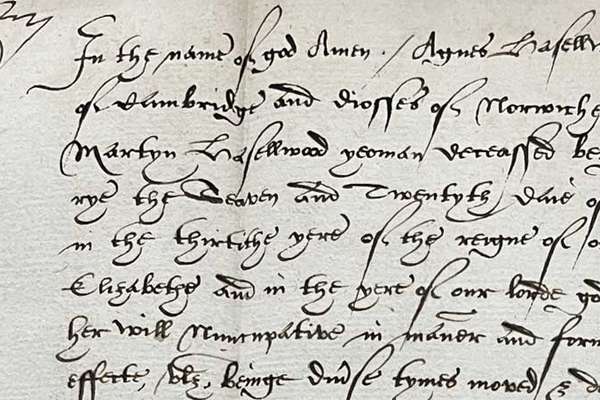 In the name of god Amen. / Agnes Hasellw
of Cambridge and diosses of Norwiche
Martyn Hasellwood yeoman deceassed be
rye the Seaven and Twentyth daie of
in the thirtithe yere of the reigne of o
Elizabethe and in the yere of our lorde go
her will Nuncupative in maner and form
effecte, vlz, beinge divse tymes moved &